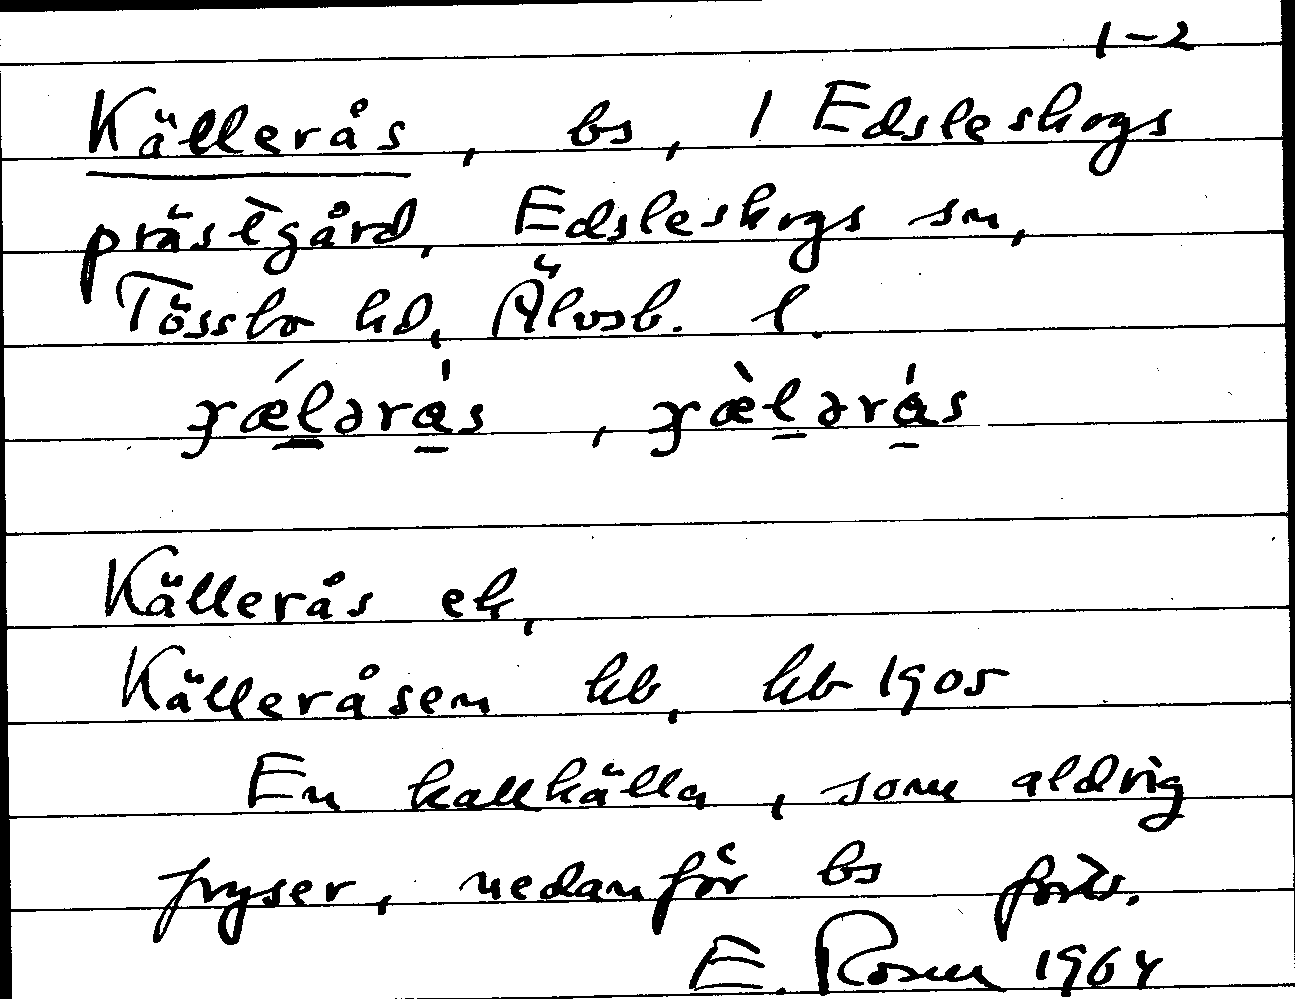 1-2
Källerås, bs, i Edsleskogs
prästgård, Edsleskogs sn,
Tössbo hd, Älvsb. l.
Källerås ek,
Källeråsen hb, hb 1905
En kallkälla, som aldrig
fryser, nedanför bs forts.
E. Rosén 1964